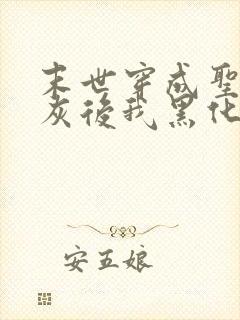 末世穿成聖
灰後我黑化
安五娘